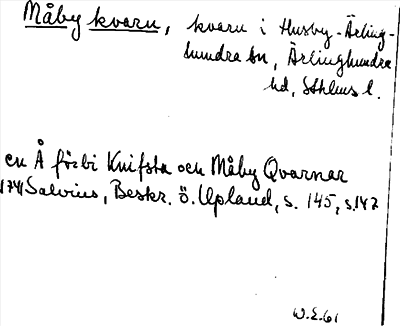 Måby kvarn, kvarn i Husby-Ärling-
hundra sn, Ärlinghundra
hd, Sthlms l.
en Å förbi Knifsta och Måby Qvarnar
1741 Salvius, Beskr. ö. Upland, s. 145, s.147
W.E.61